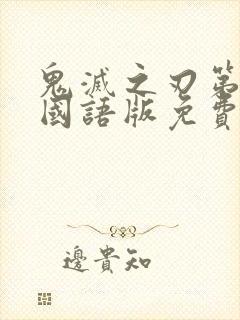 鬼滅之刃第
國語版免費
邊貴知